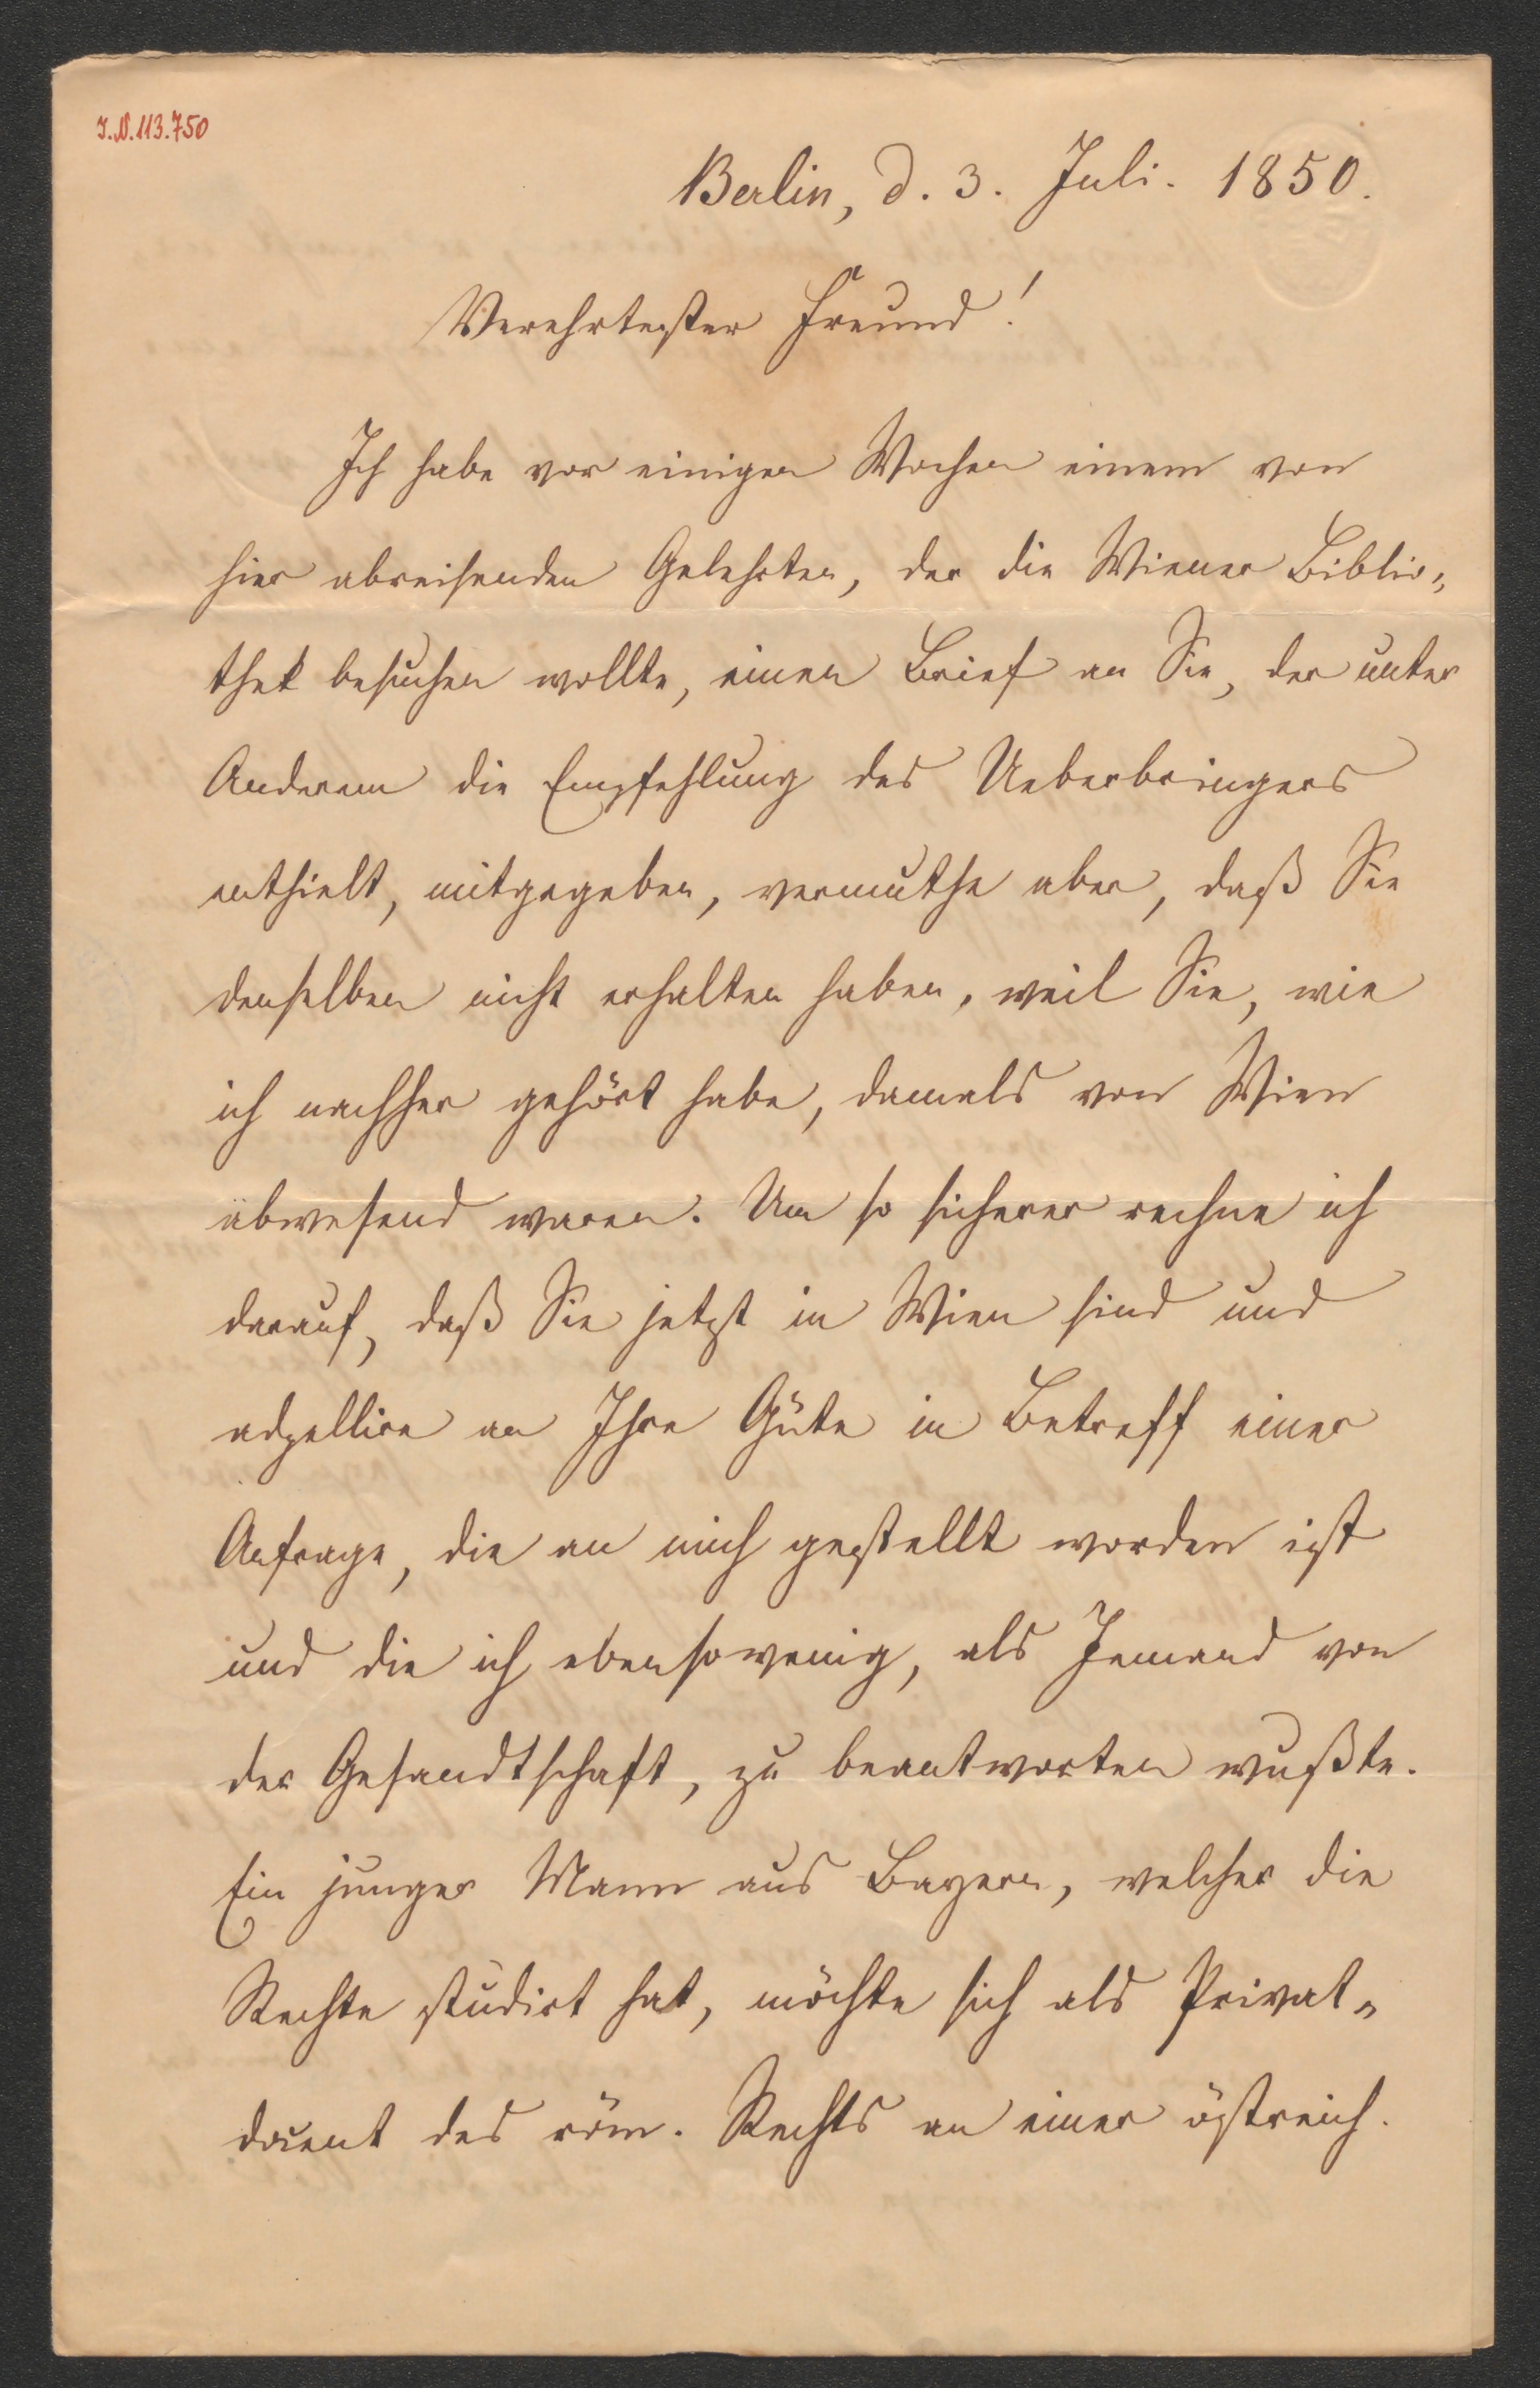 I.N. 113.750
Berlin, d. 3. Juli. 1850.
Verehrtester Freund!
Ich habe vor einigen Wochen einem von
hier abreisenden Gelehrten, der die Wiener Biblio-
thek besuchen wollte, einen Brief an Sie, der unter
Anderem die Empfehlung des Ueberbringers
enthielt, mitgegeben, vermuthe aber, daß Sie
denselben nicht erhalten haben, weil Sie, wie
ich nachher gehört habe, damals von Wien
abwesend waren. Um so sicherer rechne ich
darauf, daß Sie jetzt in Wien sind und
adpellire an Ihre Güte in Betreff einer
Anfrage, die an mich gestellt worden ist
und die ich ebensowenig, als Jemand von
der Gesandtschaft, zu beantworten wußte.
Ein junger Mann aus Bayern, welcher die
Rechte studirt hat, möchte sich als Privat-
docent des röm. Rechts an einer östreich.